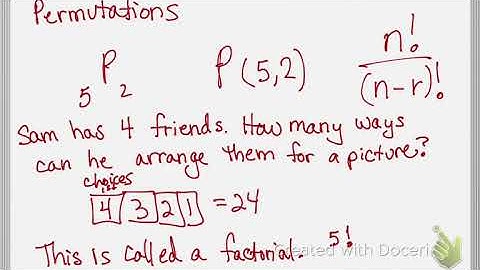 Permutations
₅P₂ P(5,2) n!/(n-r)!
Sam has 4 friends. How many ways
can he arrange them for a picture?
choices
4 3 2 1 = 24
This is called a factorial. 5!
Created with Doceri